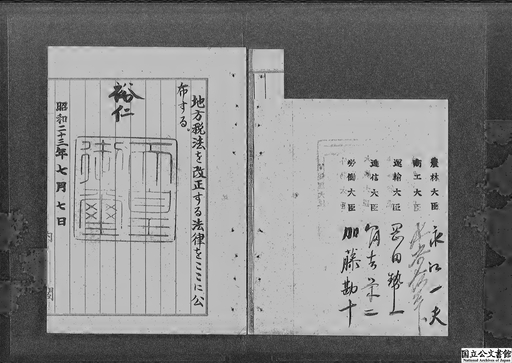 地方税法を改正する法律をここに公
布する。
裕仁
昭和二十三年七月七日
天皇
御璽
農林大臣 永江一夫
商工大臣
運輸大臣 岡田勢一
逓信大臣 冨吉榮二
労働大臣 加藤勘十
国立公文書館
National Archives of Japan